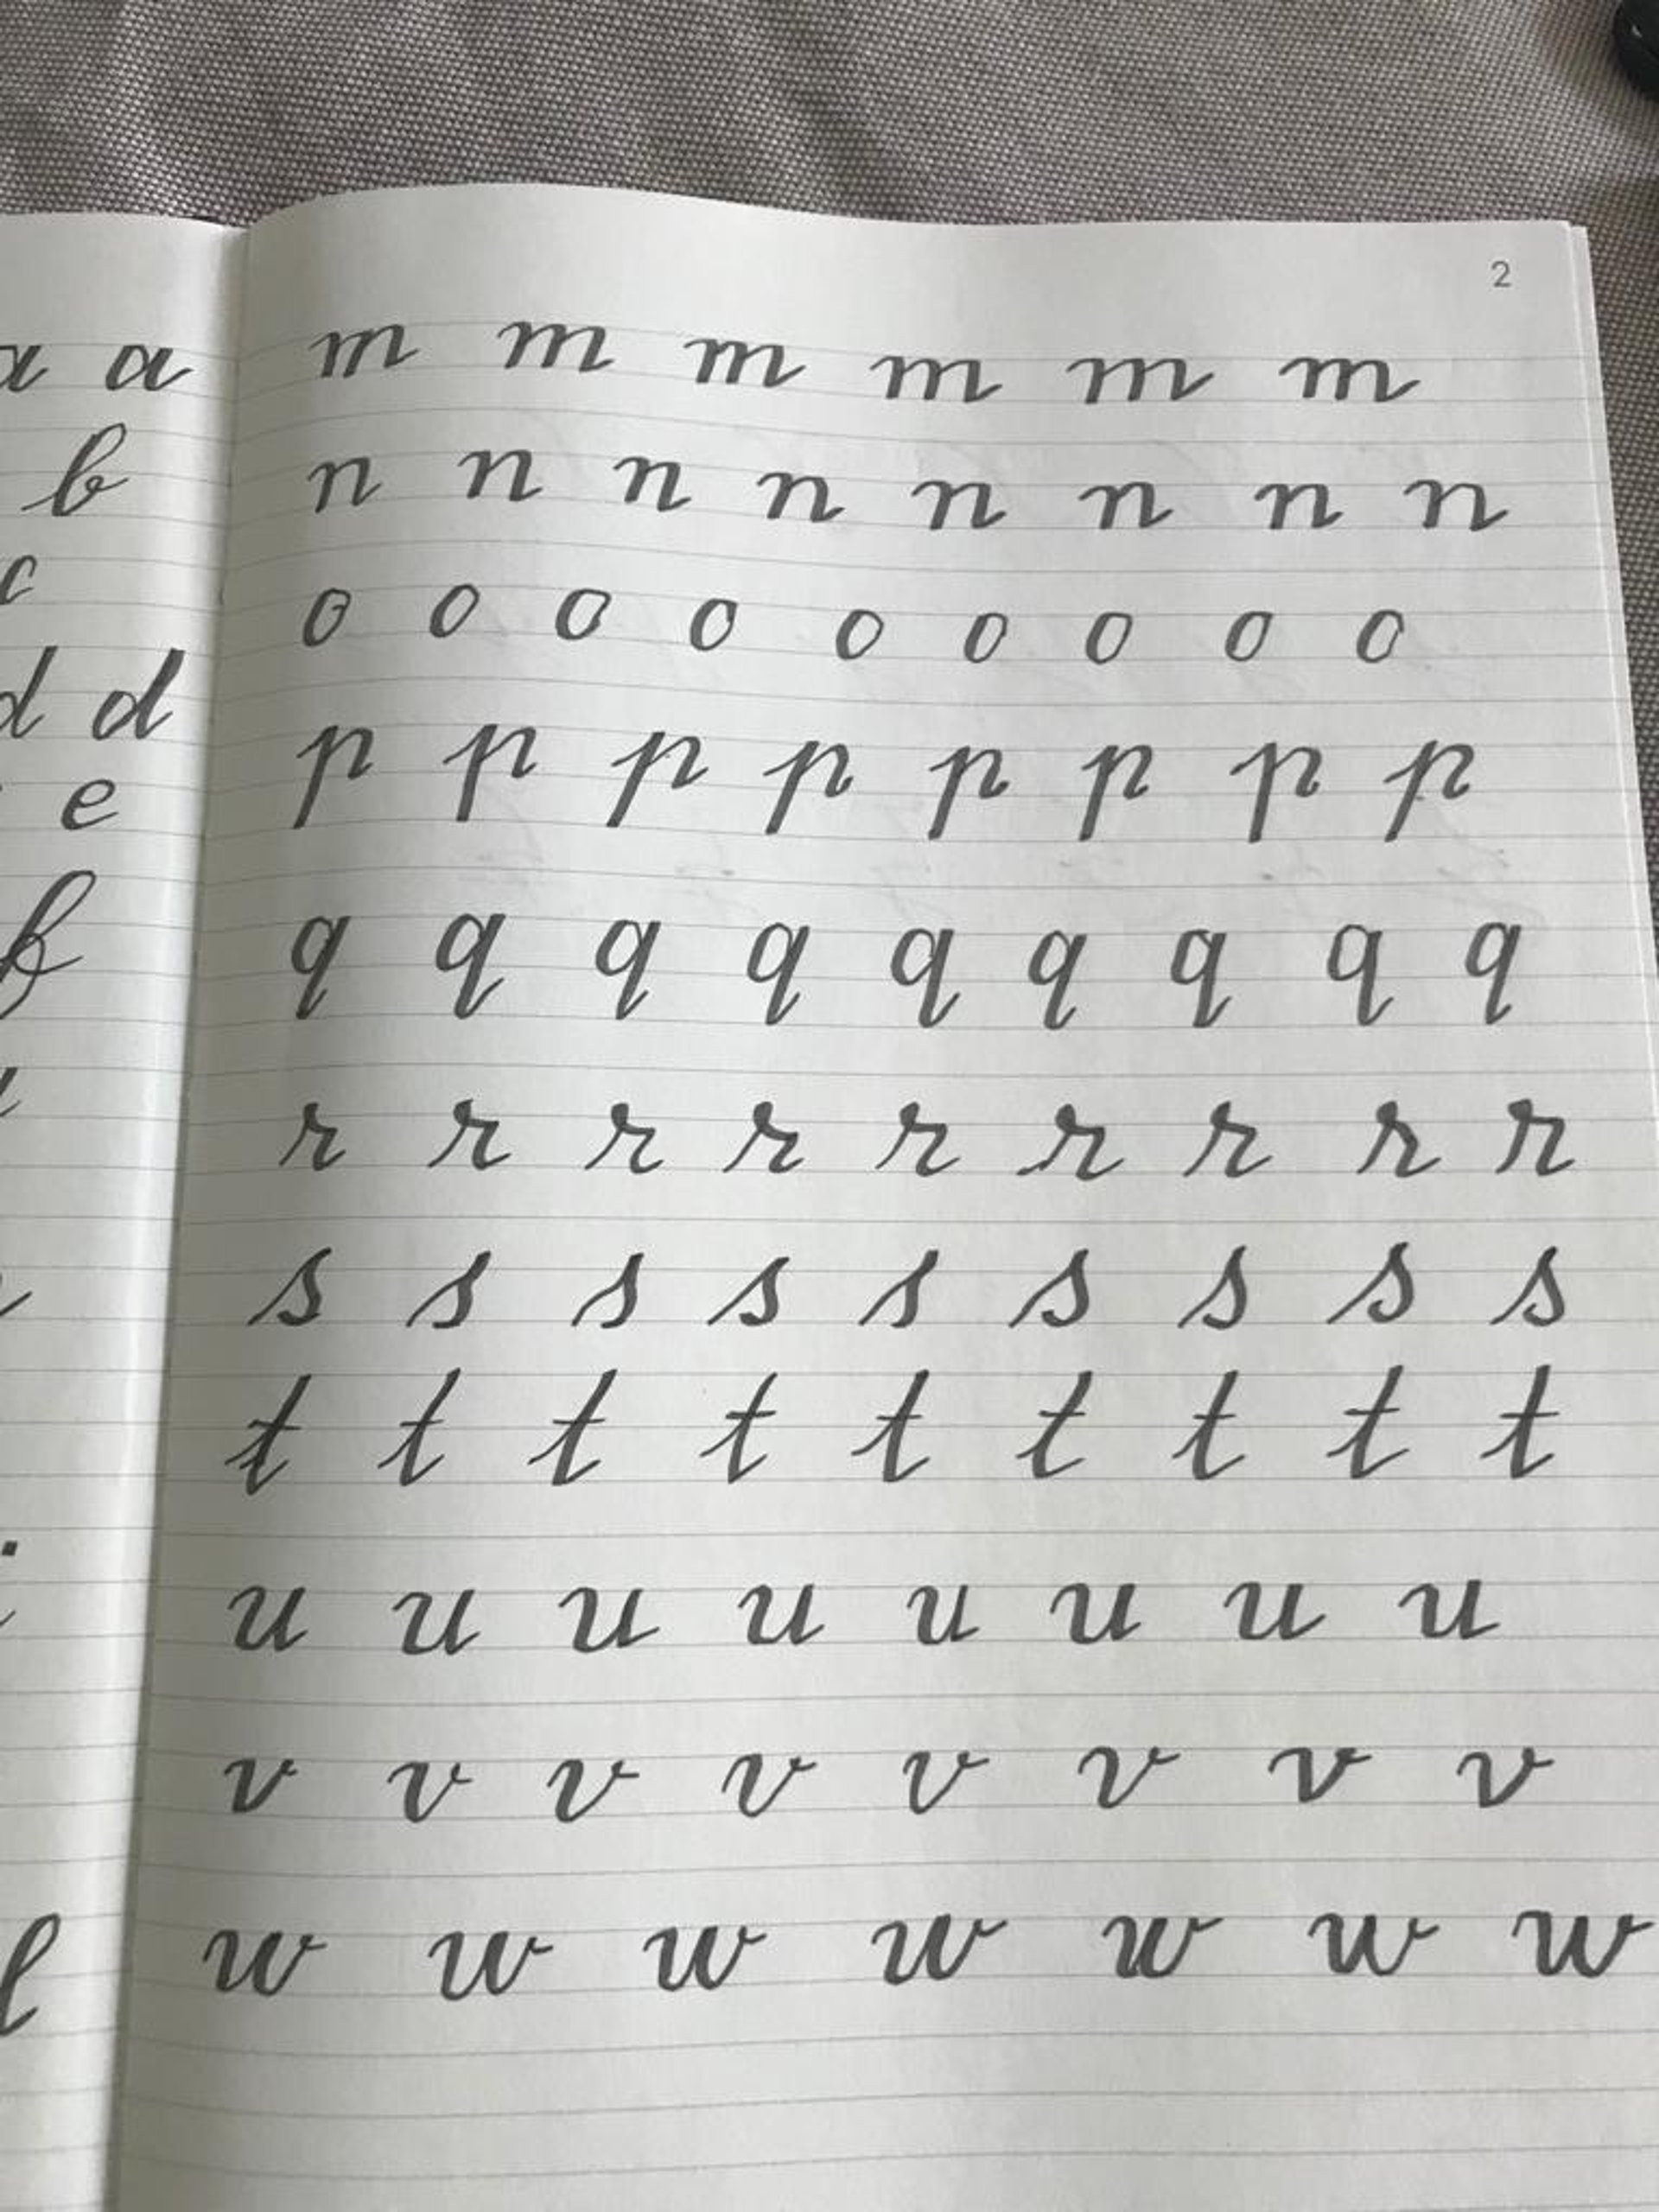 a a
b
c
d d
e
f
l
2
m m m m m m
n n n n n n n n
o o o o o o o o o
p p p p p p p p
q q q q q q q q q
r r r r r r r r r
s s s s s s s s s
t t t t t t t t t
u u u u u u u u
v v v v v v v v
w w w w w w w